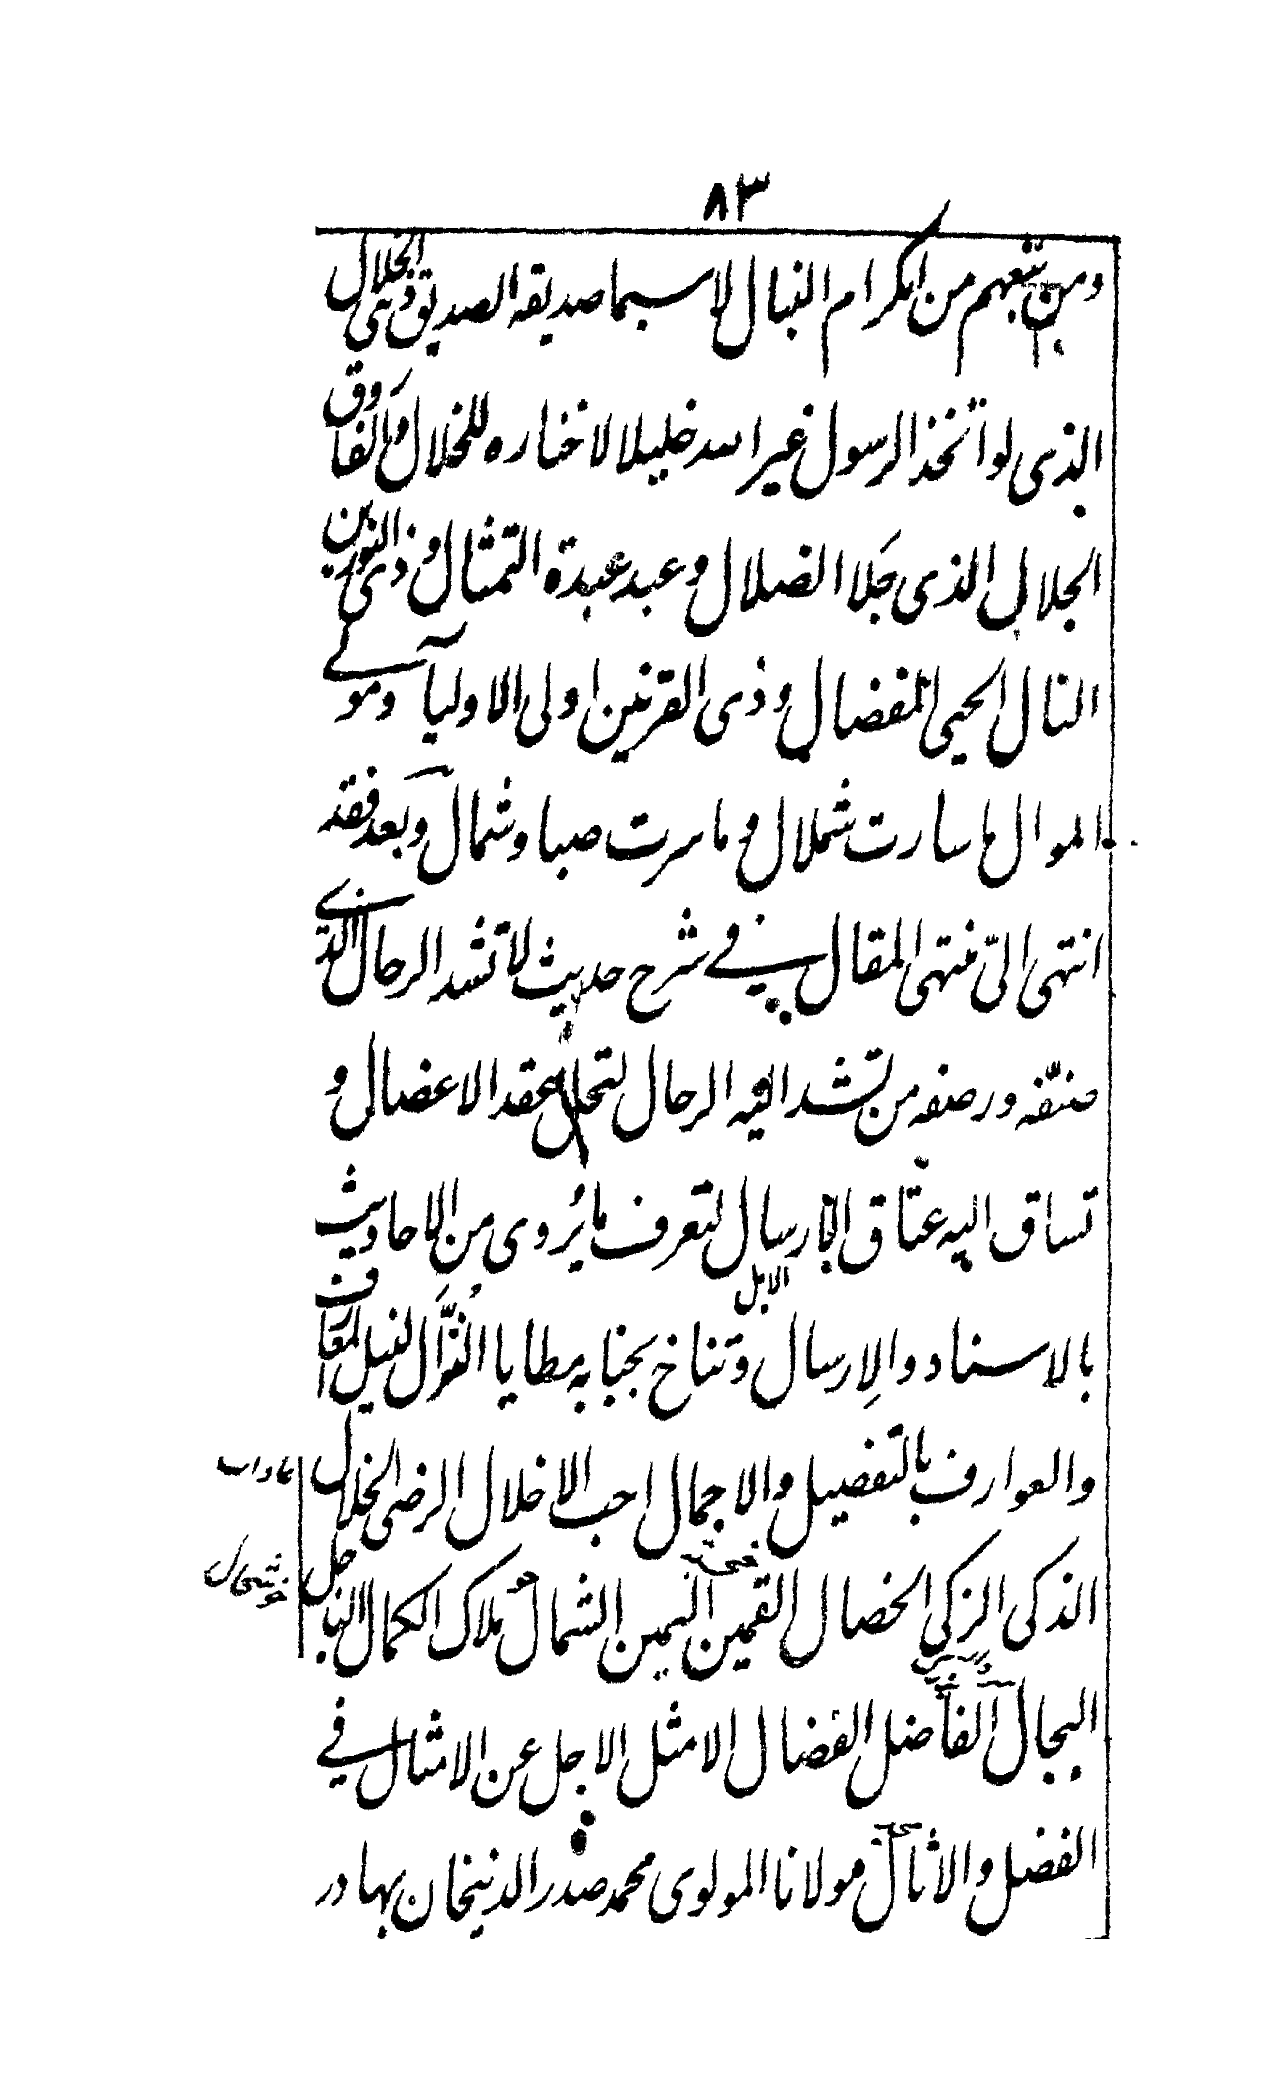 ٨٣
ومن تبعهم من اكرام النبال لا سيما صديقه الصديق ذى الخلال
الذى لو اتخذ الرسول غير الله خليلا لاختاره للخلال والفاروق
الجلال الذى جلا الضلال وعبد عبدة التمثال وذى النورين
النال الحيى المفضال وذى القرنين اولى الاولياء ومولى
الموال ما سارت شملال وما سرت صبا وشمال وبعد فقد
انتهى الىّ منتهى المقال فى شرح حديث لا تشد الرحال الذى
صنّفه ورصفه من تشد اليه الرحال لتحل عقد الاعضال و
تساق اليه عتاق الابارسال لتعرف ما يُروى من الاحاديث
الابل
بالاسناد والارسال وتناخ بجنابه مطايا النُزَّال لنيل المعارف
والعوارف بالتفصيل والاجمال احب الاخلال الرضى الخلال
الذكى الزكى الخصال القمين اليمين الشمال ملاك الكمال النابل
البجال الفاضل الفضال الامثل الاجل عن الامثال فى
الفضل والاثال مولانا المولوى محمد صدر الدينخان بهادر
عادات
خوشحال